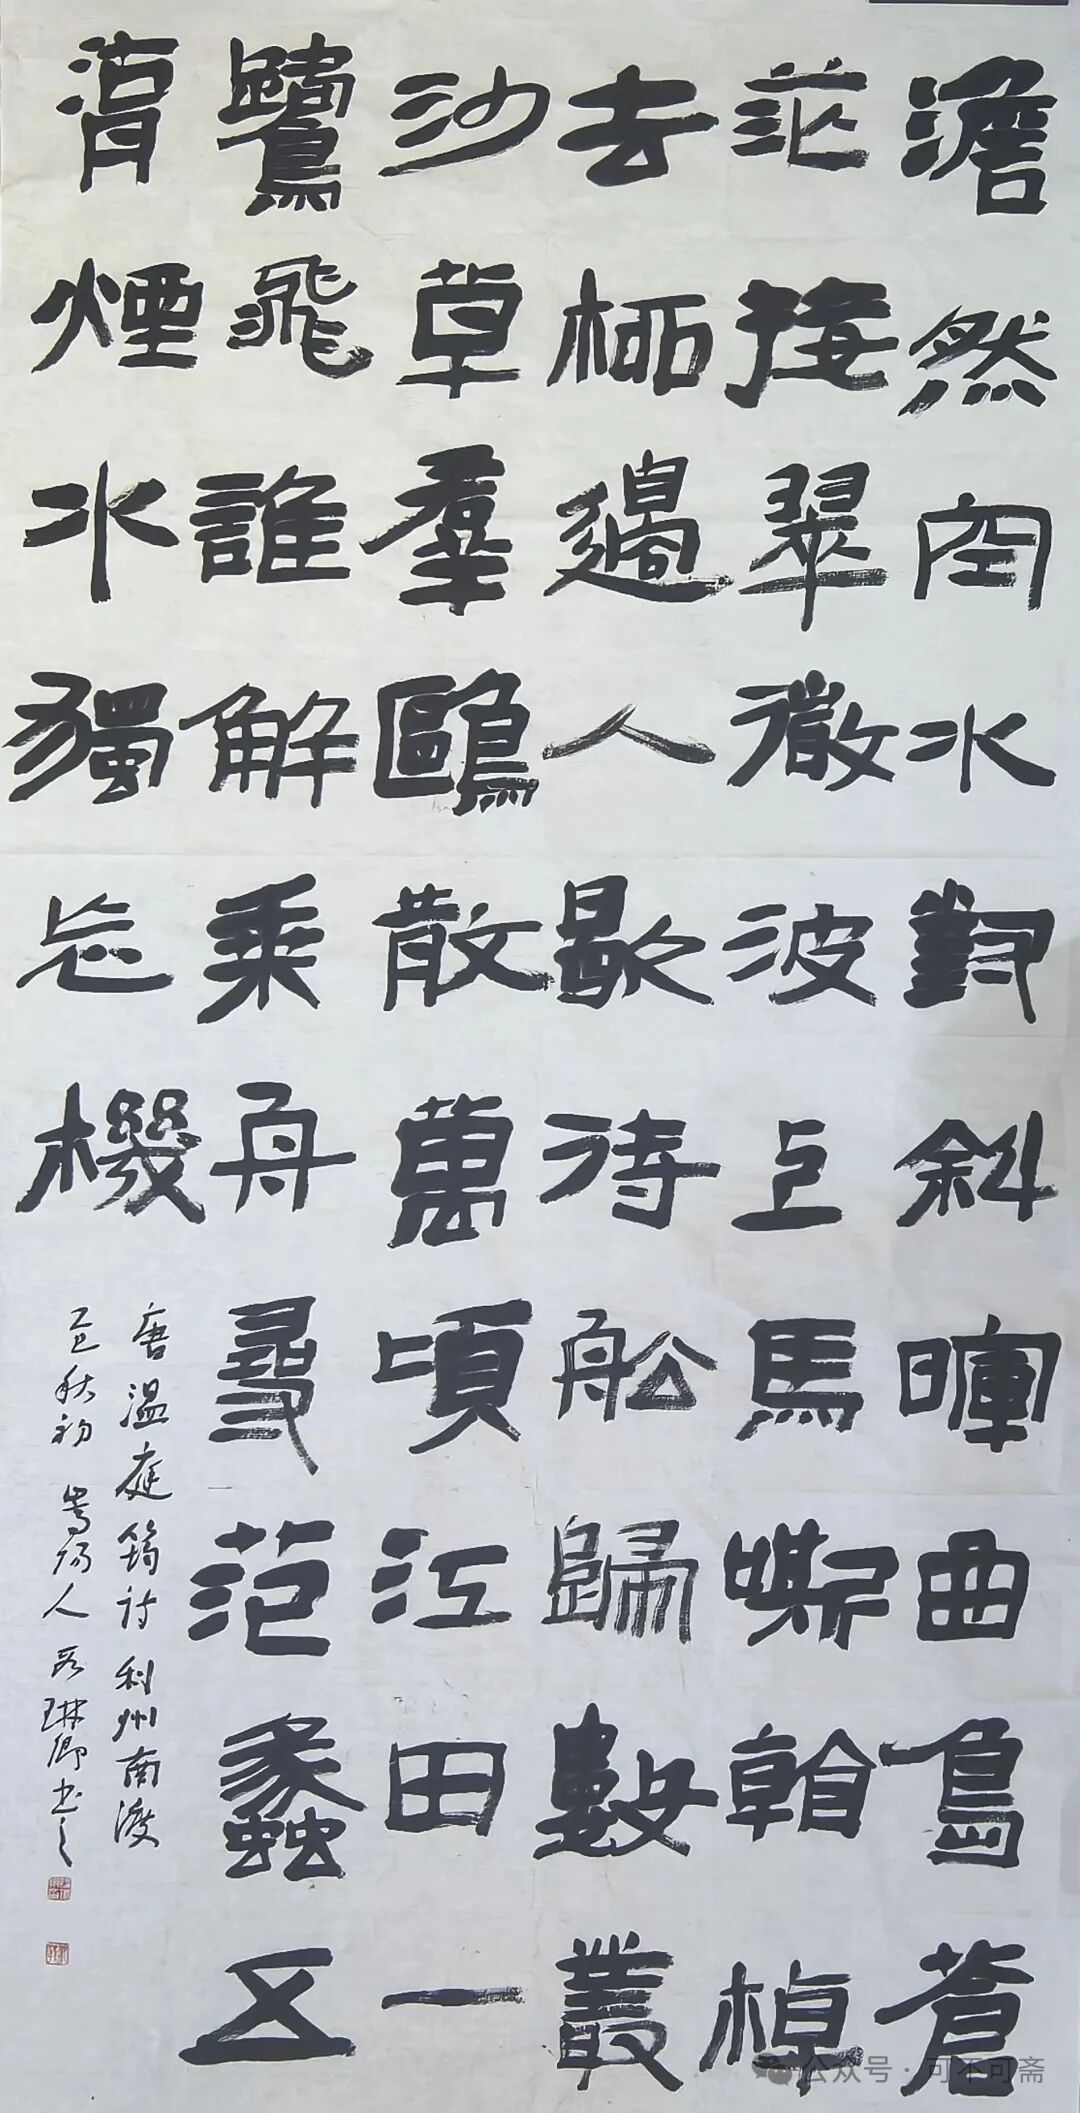 澹然空水對斜暉曲島蒼
茫接翠微波上馬嘶看棹
去柳邊人歇待舩歸數叢
沙草羣鷗散萬頃江田一
鷺飛誰解乘舟尋范蠡五
湖煙水獨忘機
唐温庭筠诗利州南渡
乙巳秋初 嵩陽人琳卿书之
公众号·可不可斋